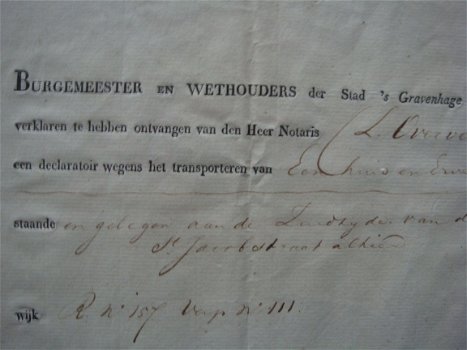 BURGEMEESTER EN WETHOUDERS der Stad 's Gravenhage
verklaren te hebben ontvangen van den Heer Notaris
een declaratoir wegens het transporteren van Een huis en Erve
staande en gelegen aan de Zuidzyde van d
St. Jacobstraat alhier
wijk R No 157 Verp No 111.